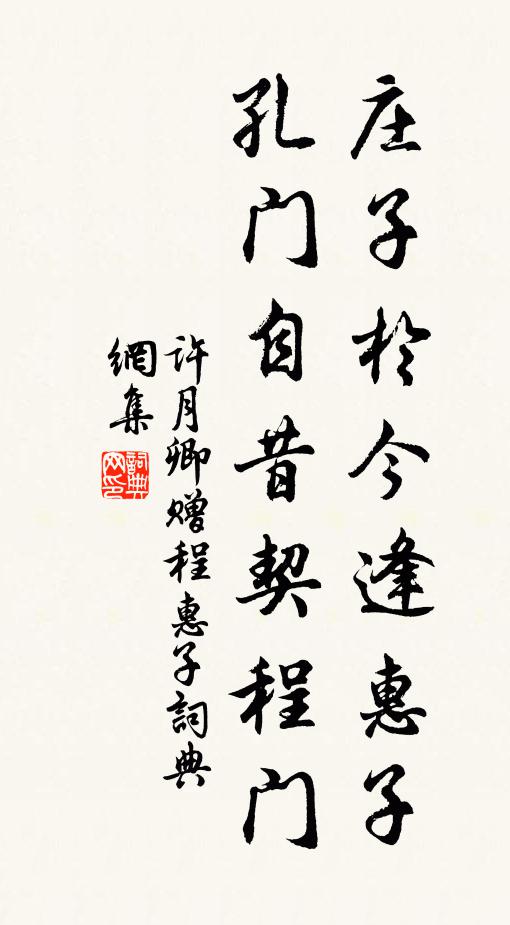 庄子於今逢惠子
孔门自昔契程门
许月卿赠程惠子詞典
網集
詞典
网印